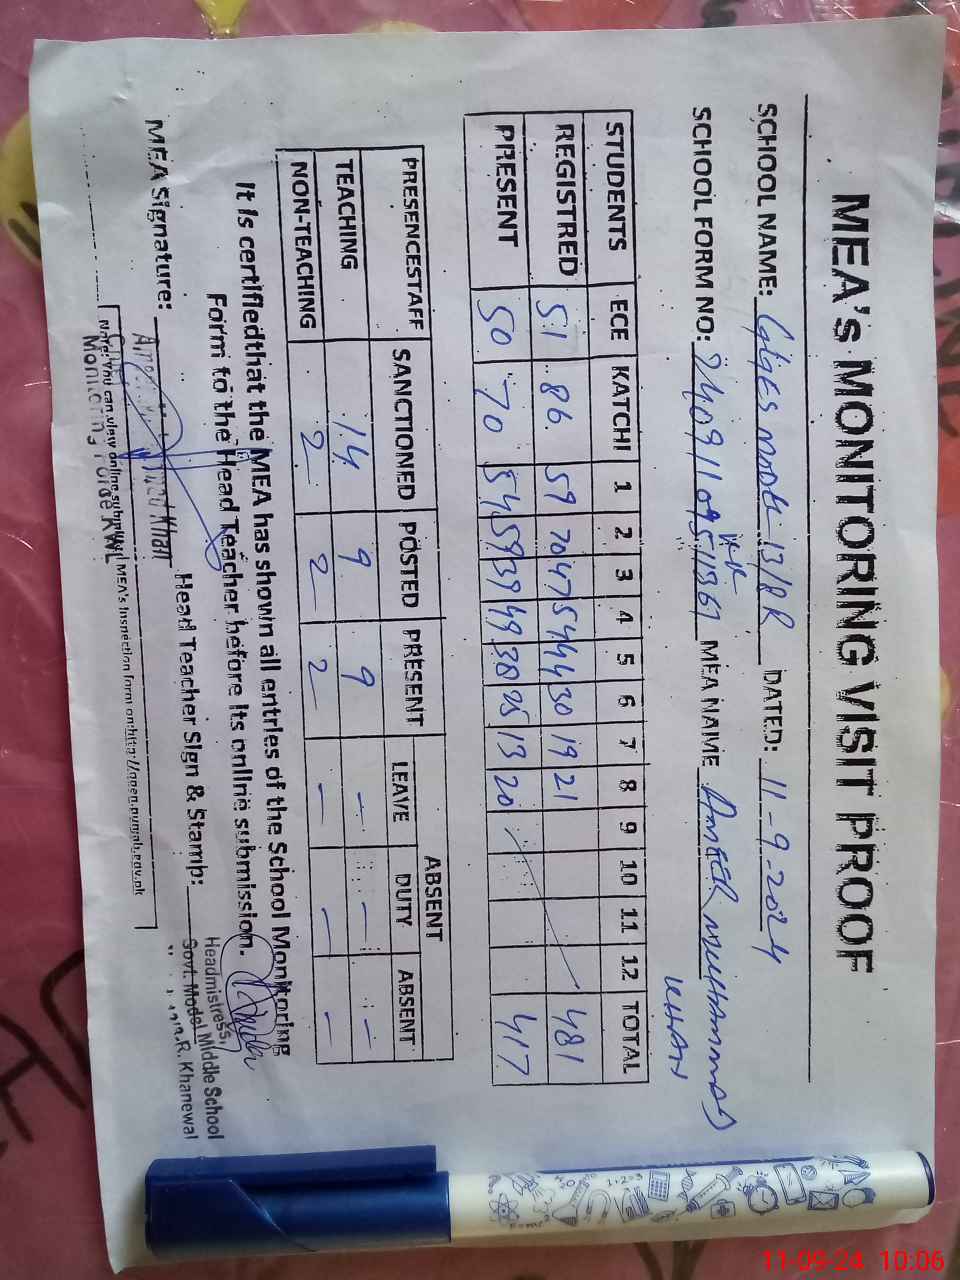 MEA's MONITORING VISIT PROOF
SCHOOL NAME: GGES MODEL 13/8R DATED: 11-9-2024
SCHOOL FORM NO: MEA NAME AMEER MUHAMMAD
KHAN
STUDENTS ECE KATCHI 1 2 3 4 5 6 7 8 9 10 11 12 TOTAL
REGISTRED 51 86 59 70 47 54 44 30 19 21 481
PRESENT 50 70 54 59 39 49 38 25 13 20 417
PRESENCESTAFF SANCTIONED POSTED PRESENT ABSENT
LEAVE DUTY ABSENT
TEACHING 14 9 9 - - -
NON-TEACHING 2 2 2 - - -
It is certifiedthat the MEA has shown all entries of the School Monitoring
Form to the Head Teacher before its online submission.
MEA Signature: Head Teacher Sign & Stamp:
Headmistress,
Govt. Model Middle School
Khanewal
Khan
Monitoring Force KWL
Note: You can view online submitted MEA's Inspection form on http://open.punjab.gov.pk
11-09-24 10:06